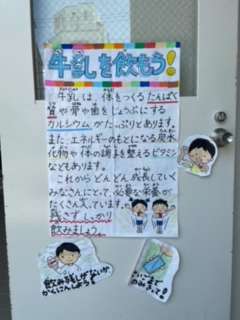 牛乳を飲もう!
牛乳は、体をつくるたんぱく
質や骨や歯をじょうぶにする
カルシウムがたっぷりとあります。
また、エネルギーのもとになる炭水
化物や体の調子を整えるビタミン
などもあります。
これからどんどん成長していく
みなさんにとって、必要な栄養が
たくさん入っています。
残さずしっかり
飲みましょう。
飲み残しがないか
かくにんしよう!
さいごまで
のみきって!